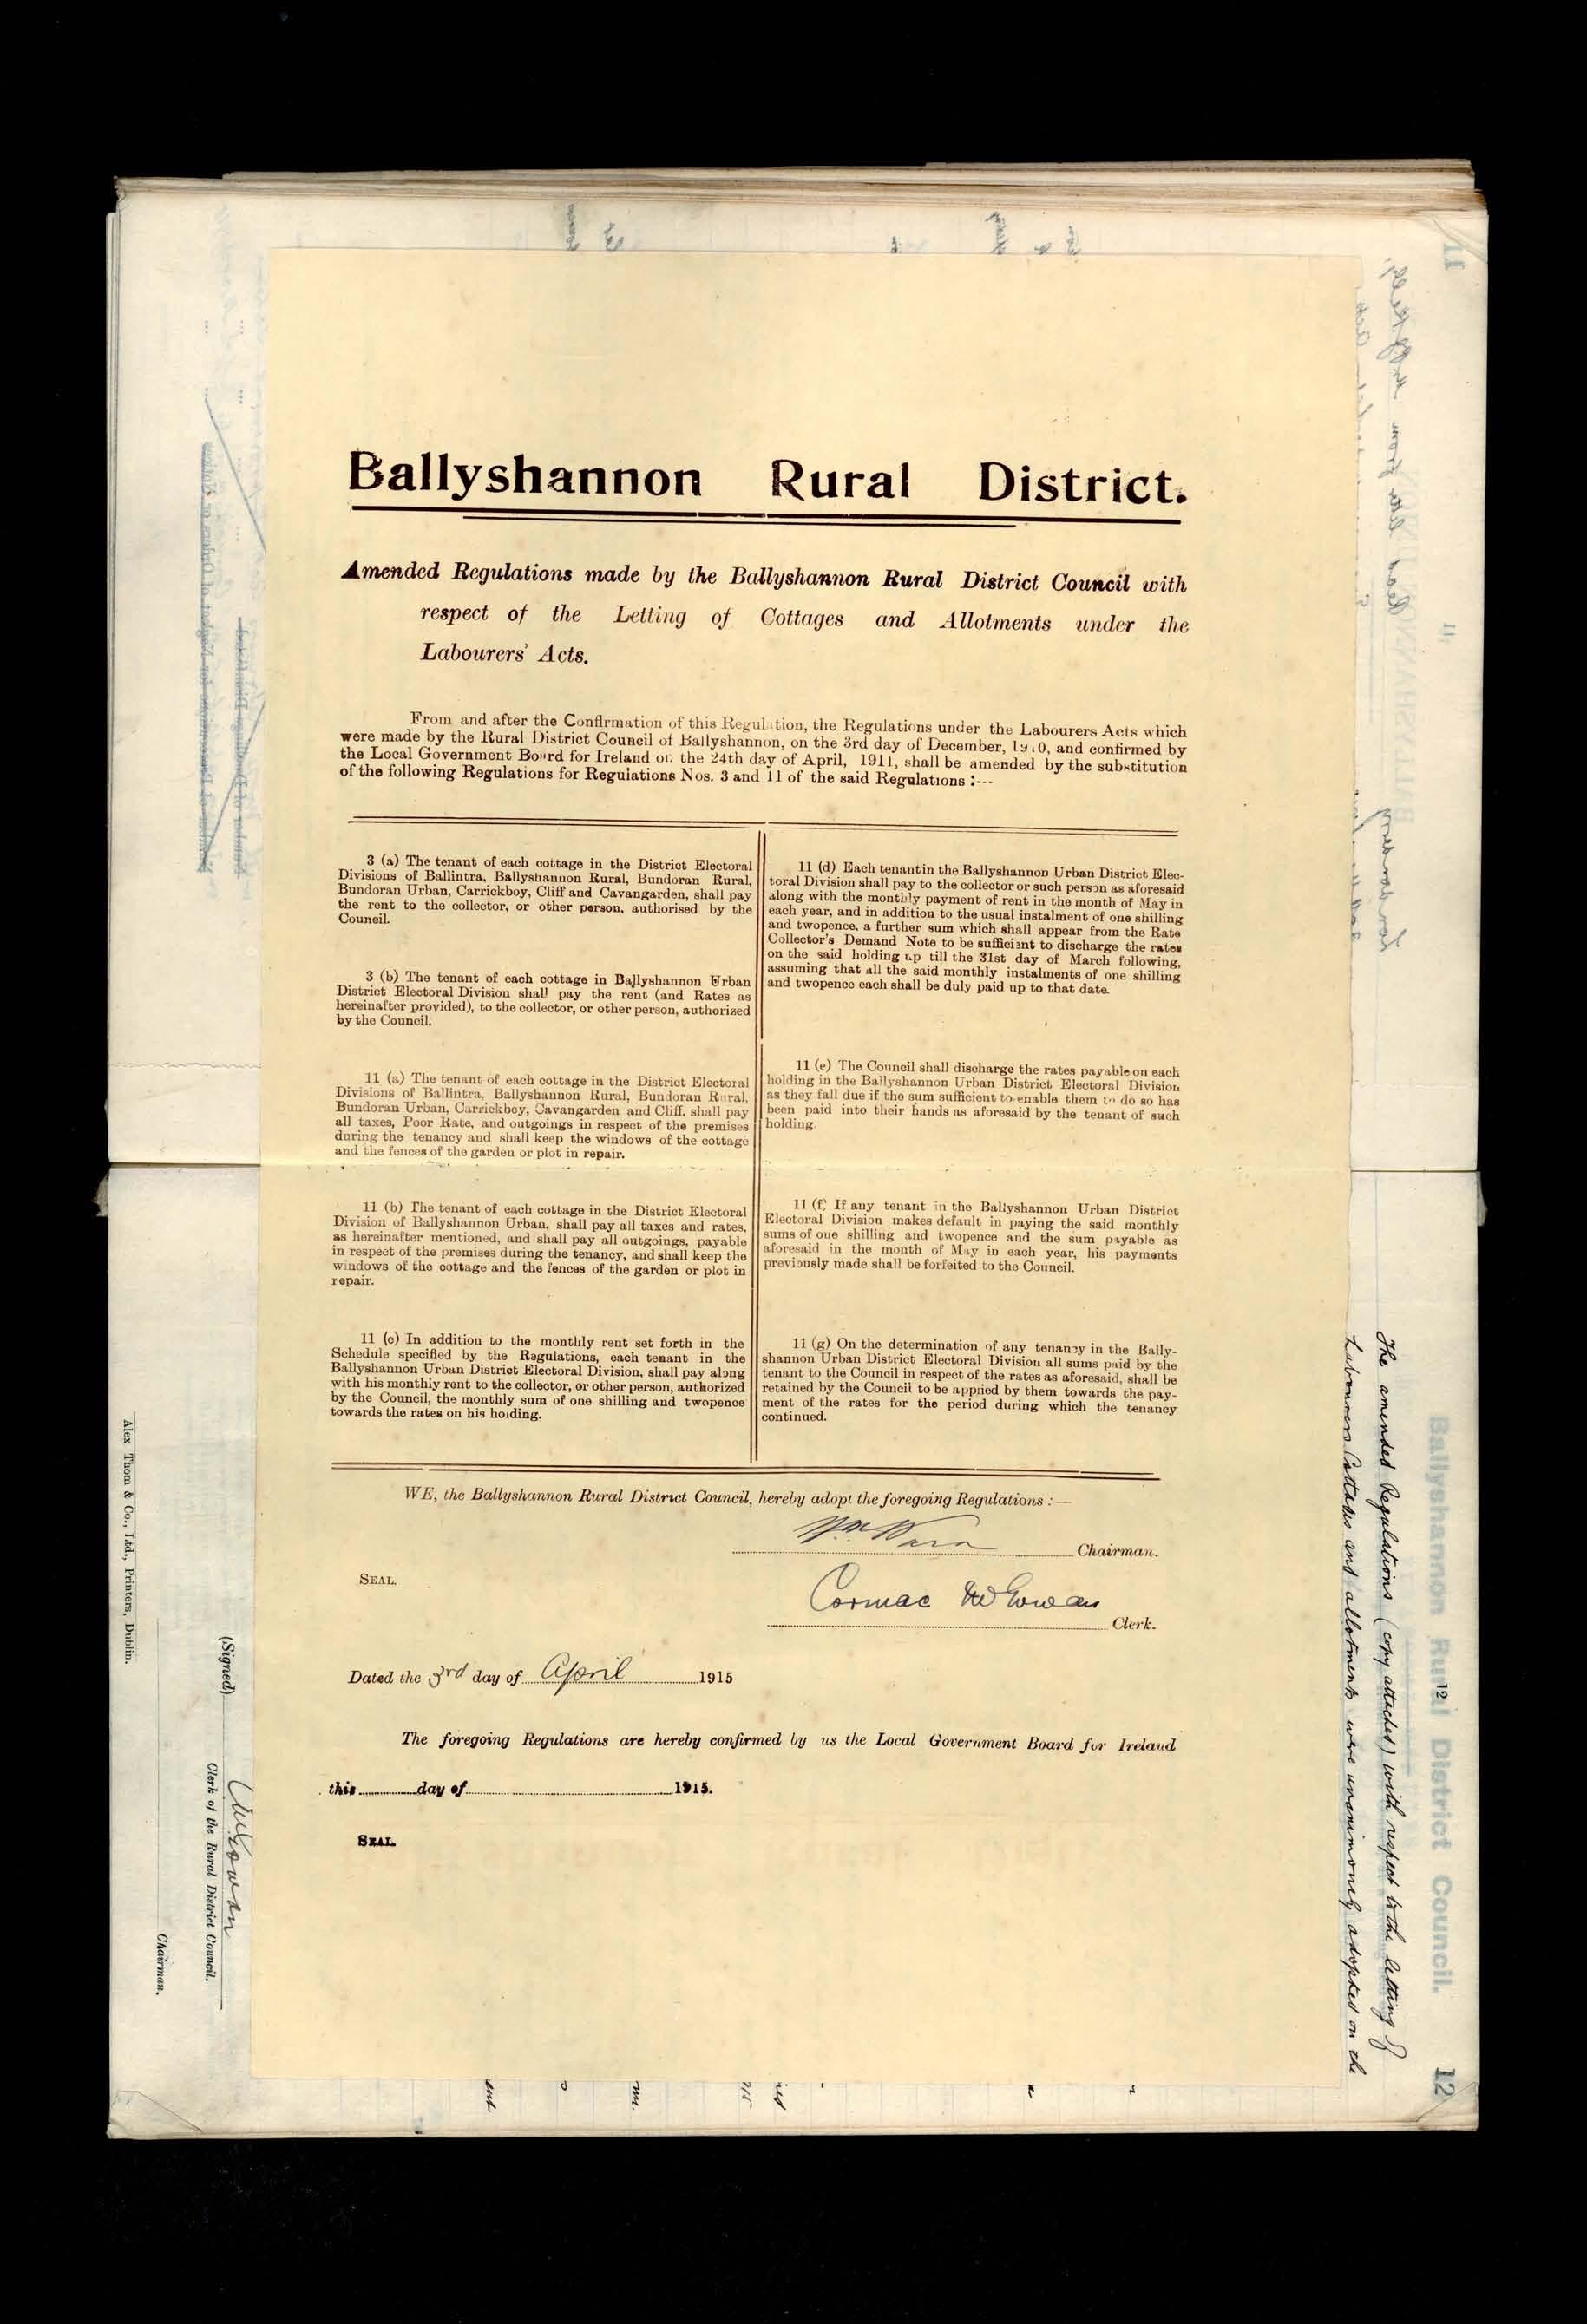 Ballyshannon Rural District.
Amended Regulations made by the Ballyshannon Rural District Council with
respect of the Letting of Cottages and Allotments under the
Labourers' Acts.
From and after the Confirmation of this Regulation, the Regulations under the Labourers Acts which
were made by the Rural District Council of Ballyshannon, on the 3rd day of December, 1910, and confirmed by
the Local Government Board for Ireland on the 24th day of April, 1911, shall be amended by the substitution
of the following Regulations for Regulations Nos. 3 and 11 of the said Regulations :---
3 (a) The tenant of each cottage in the District Electoral
Divisions of Ballintra, Ballyshannon Rural, Bundoran Rural,
Bundoran Urban, Carrickboy, Cliff and Cavangarden, shall pay
the rent to the collector, or other person, authorised by the
Council.
3 (b) The tenant of each cottage in Ballyshannon Urban
District Electoral Division shall pay the rent (and Rates as
hereinafter provided), to the collector, or other person, authorized
by the Council.
11 (a) The tenant of each cottage in the District Electoral
Divisions of Ballintra, Ballyshannon Rural, Bundoran Rural,
Bundoran Urban, Carrickboy, Cavangarden and Cliff, shall pay
all taxes, Poor Rate, and outgoings in respect of the premises
during the tenancy and shall keep the windows of the cottage
and the fences of the garden or plot in repair.
11 (b) The tenant of each cottage in the District Electoral
Division of Ballyshannon Urban, shall pay all taxes and rates,
as hereinafter mentioned, and shall pay all outgoings, payable
in respect of the premises during the tenancy, and shall keep the
windows of the cottage and the fences of the garden or plot in
repair.
11 (c) In addition to the monthly rent set forth in the
Schedule specified by the Regulations, each tenant in the
Ballyshannon Urban District Electoral Division, shall pay along
with his monthly rent to the collector, or other person, authorized
by the Council, the monthly sum of one shilling and twopence
towards the rates on his holding.
11 (d) Each tenant in the Ballyshannon Urban District Elec-
toral Division shall pay to the collector or such person as aforesaid
along with the monthly payment of rent in the month of May in
each year, and in addition to the usual instalment of one shilling
and twopence, a further sum which shall appear from the Rate
Collector's Demand Note to be sufficient to discharge the rates
on the said holding up till the 31st day of March following,
assuming that all the said monthly instalments of one shilling
and twopence each shall be duly paid up to that date.
11 (e) The Council shall discharge the rates payable on each
holding in the Ballyshannon Urban District Electoral Division
as they fall due if the sum sufficient to enable them to do so has
been paid into their hands as aforesaid by the tenant of such
holding.
11 (f) If any tenant in the Ballyshannon Urban District
Electoral Division makes default in paying the said monthly
sums of one shilling and twopence and the sum payable as
aforesaid in the month of May in each year, his payments
previously made shall be forfeited to the Council.
11 (g) On the determination of any tenancy in the Bally-
shannon Urban District Electoral Division all sums paid by the
tenant to the Council in respect of the rates as aforesaid, shall be
retained by the Council to be applied by them towards the pay-
ment of the rates for the period during which the tenancy
continued.
WE, the Ballyshannon Rural District Council, hereby adopt the foregoing Regulations :—
Chairman.
SEAL.
Cormac McGowan
Clerk.
Dated the 3rd day of April 1915
The foregoing Regulations are hereby confirmed by us the Local Government Board for Ireland
this day of 1915.
SEAL.
Ballyshannon Rural District Council.
12
12
The amended Regulations (copy attached) with respect to the letting of
Labourers Cottages and allotments were unanimously adopted on the
(Signed) McGowan
Clerk of the Rural District Council.
Chairman.
Alex Thom & Co., Ltd., Printers, Dublin.